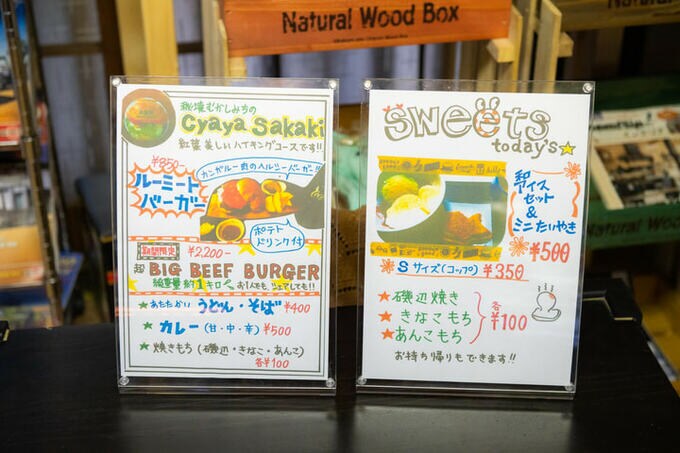 Natural Wood Box
秘境むかしみちの
Cyaya Sakaki
紅葉美しいハイキングコースです!!
¥850
ルーミート
バーガー
カンガルー肉のヘルシーバーガー!!
ポテト
ドリンク付
期間限定 ¥2,200-
超 BIG BEEF BURGER
総重量約1キロ お1人でも、シェアしても!!
★あたたかい うどん・そば ¥400
★カレー (甘・中・辛) ¥500
★焼きもち (磯辺・きなこ・あんこ)
各¥100
Sweets
today's★
アイス
セット
&
ミニたいやき
¥500
Sサイズ(コップ) ¥350
★磯辺焼き
★きなこもち
★あんこもち
各¥100
お持ち帰りもできます!!
Natural Wood Box